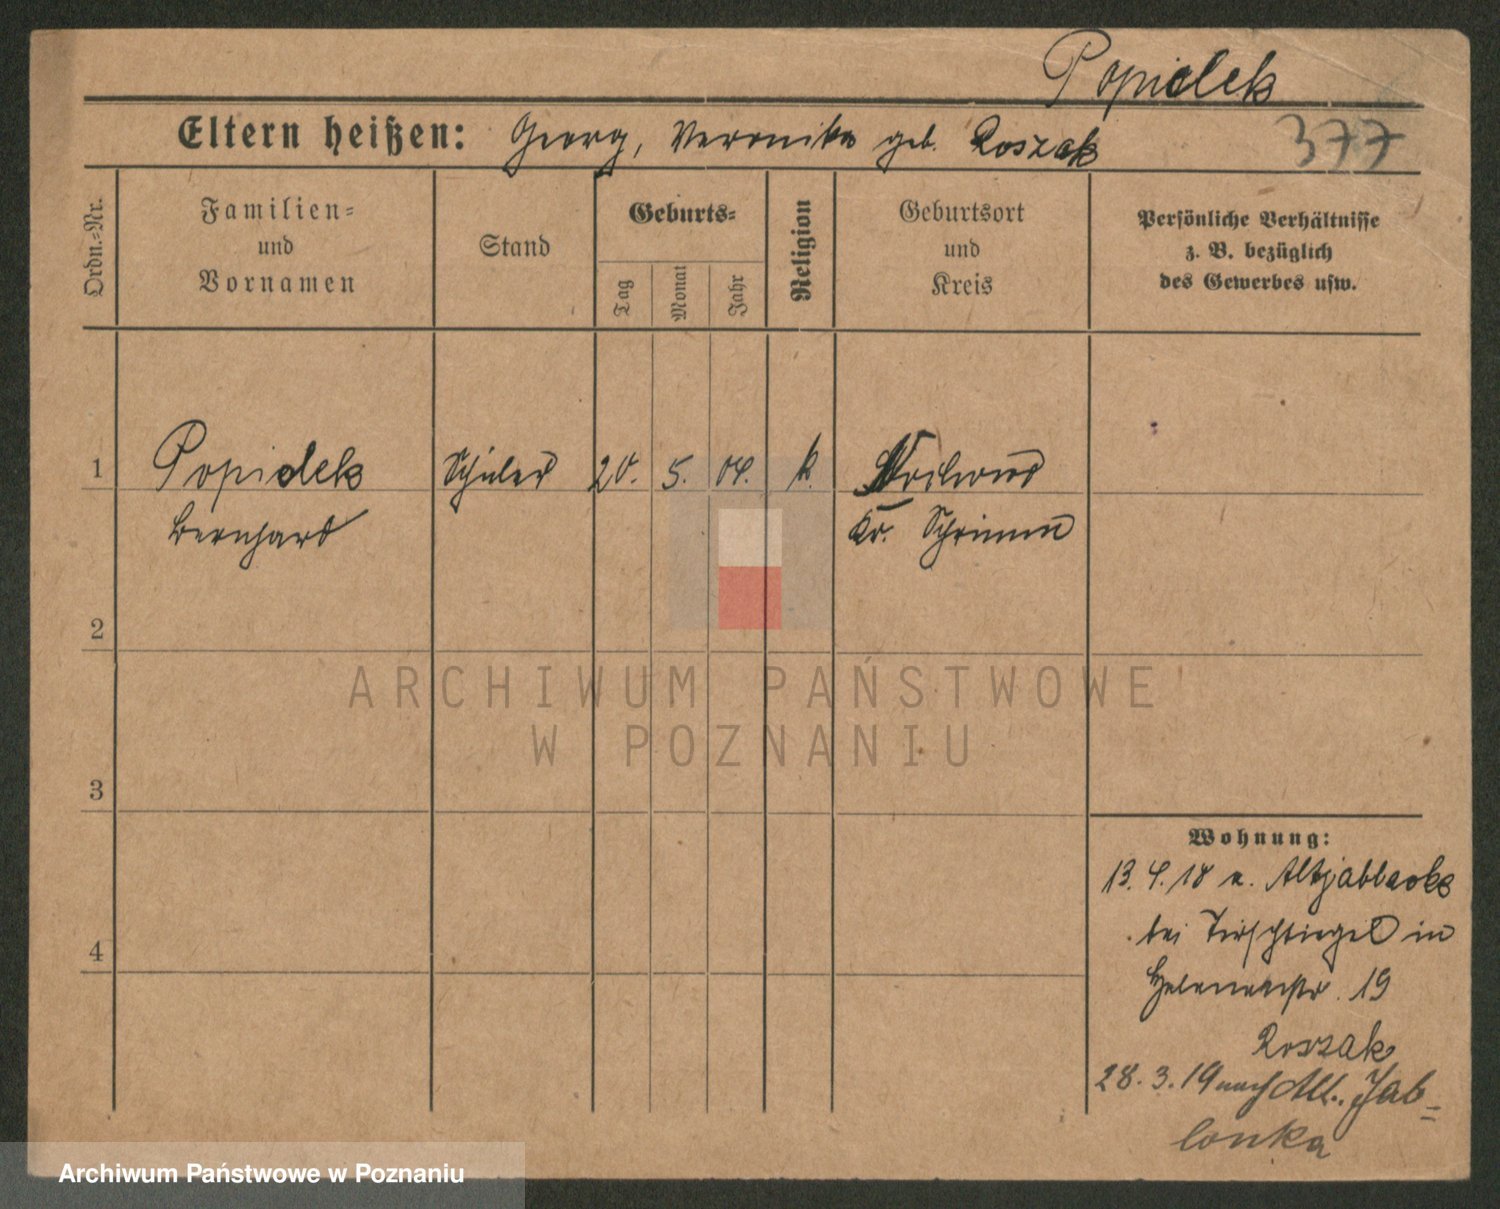 Popidek
Eltern heißen: Georg, Veronika geb. Roszak
377
Ordn.=Nr.
Familien=
und
Vornamen
Stand
Geburts=
Tag
Monat
Jahr
Religion
Geburtsort
und
Kreis
Persönliche Verhältnisse
z. B. bezüglich
des Gewerbes usw.
1 Popidek Schüler 20. 5. 04. k.
Bernhard Kr. Schrimm
2
ARCHIWUM PAŃSTWOWE
W POZNANIU
3
Wohnung:
13. 4. 18 v. Altjablonke
bei Tirschtiegel in
4
Helenenstr. 19
Roszak
28. 3. 19 nach Alt. Jab=
lonka
Archiwum Państwowe w Poznaniu